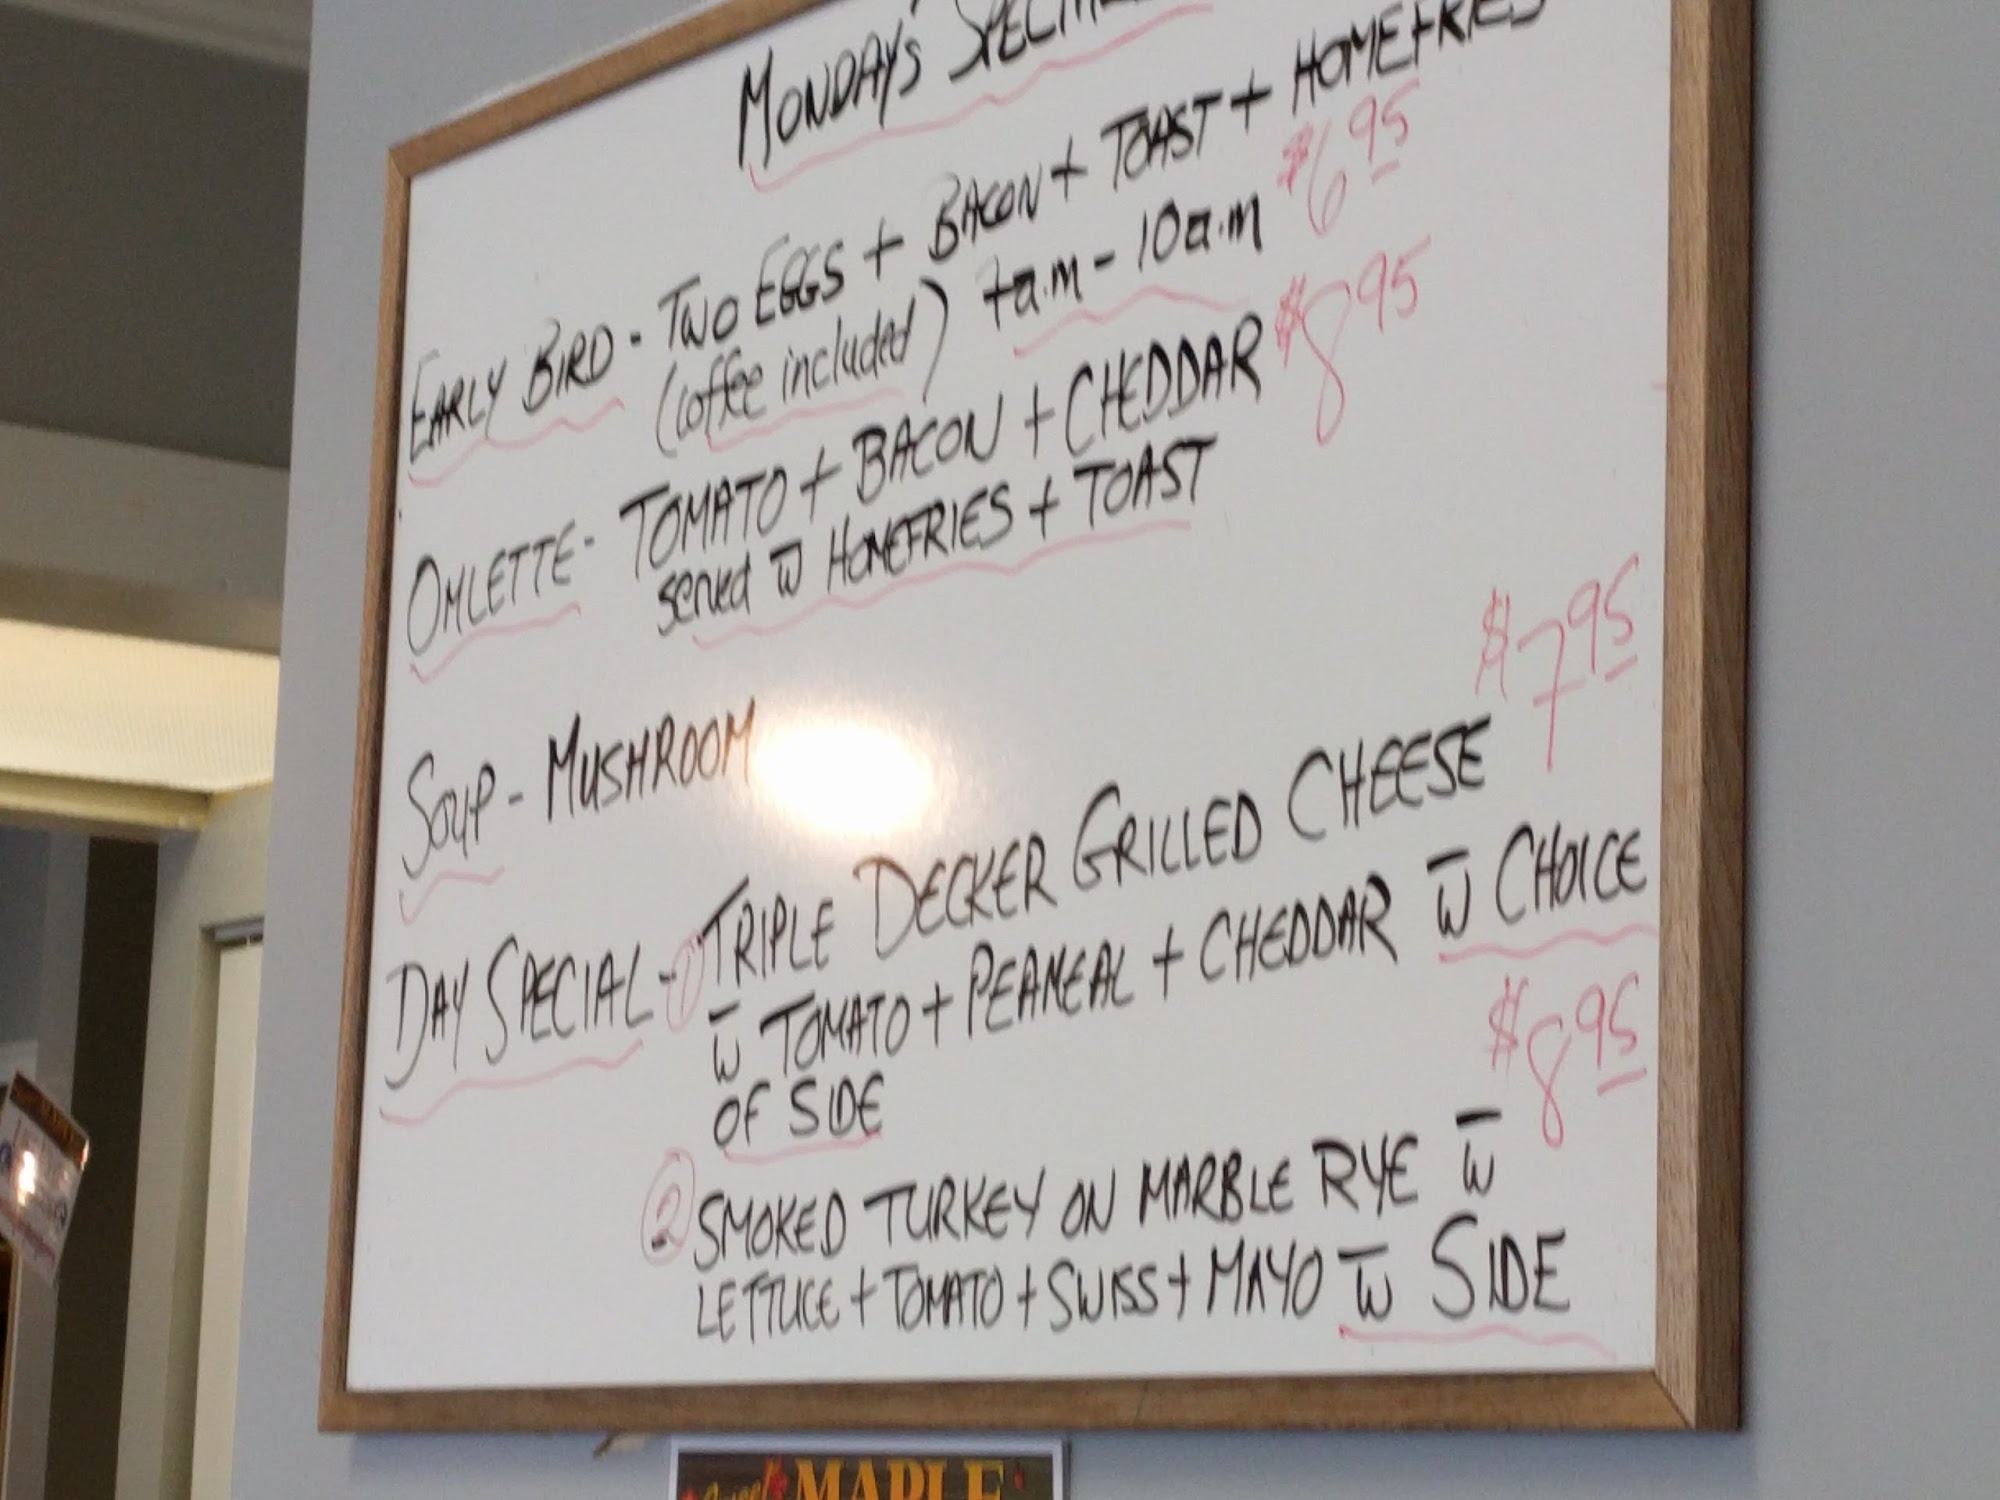 MONDAY'S
EARLY BIRD - TWO EGGS + BACON + TOAST + HOMEFRIES
(coffee included) 7a.m - 10a.m $6.95
OMLETTE - TOMATO + BACON + CHEDDAR $8.95
served w HOMEFRIES + TOAST
SOUP - MUSHROOM
$7.95
DAY SPECIAL - 1 TRIPLE DECKER GRILLED CHEESE
w TOMATO + PEAMEAL + CHEDDAR w CHOICE
OF SIDE
$8.95
2 SMOKED TURKEY ON MARBLE RYE w
LETTUCE + TOMATO + SWISS + MAYO w SIDE
MAPLE